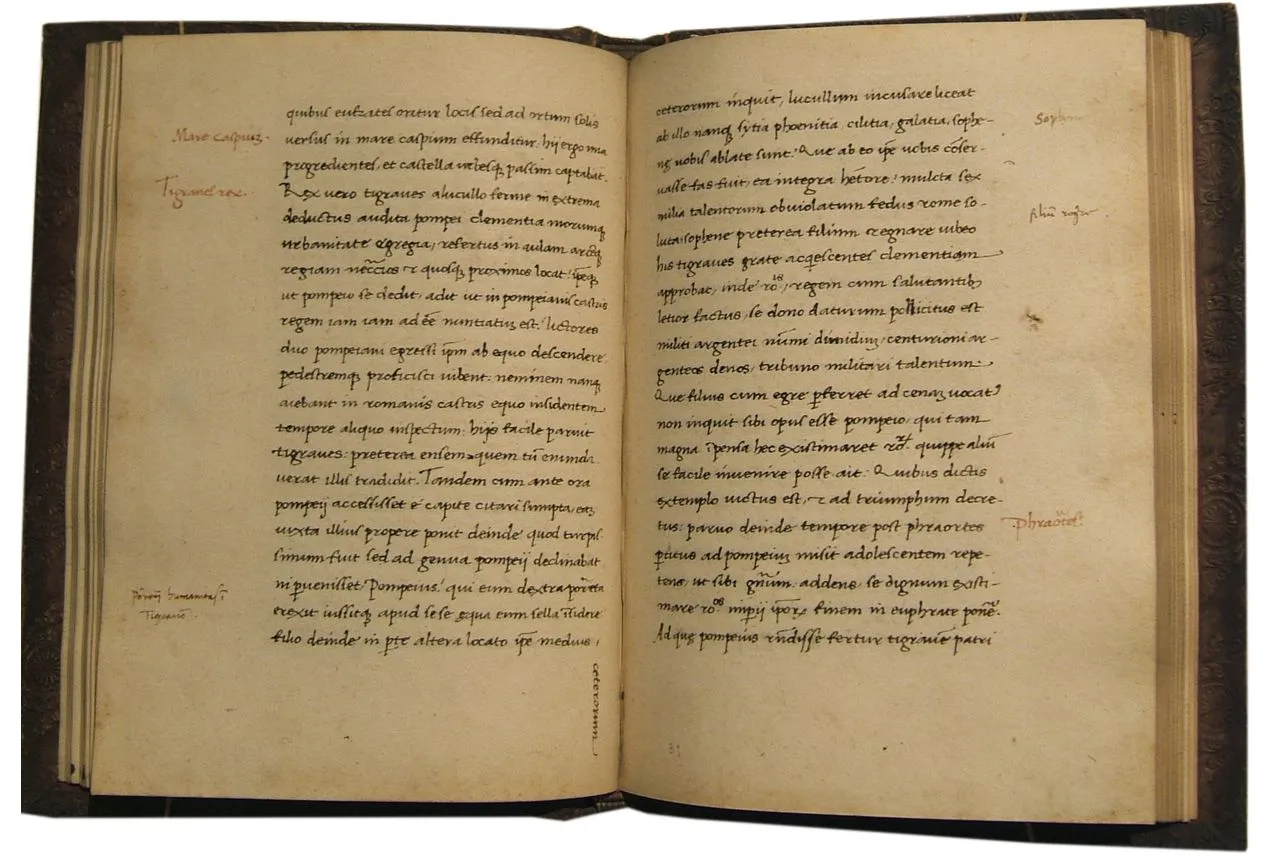 Mare caspiuz.
Tigranes rex.
quibus eufrates oritur locis sed ad ortum solis
versus in mare caspium effunditur, hij ergo una
progredientes, et castella urbesq passim captabat.
Rex vero tigraves a lucullo ferme in extrema
deductus audita pompei clementia morumq
urbanitate egregia, refertus in aulam arceq
regiam nēccios & quosq proximos locat ip̄eq
ut pompeio se dedit, adit ut in pompeianis castris
regem iam iam adēē nuntiatuz est: lictores
duo pompeiani egressi ip̄m ab equo descendere
pedestremq proficisci iubent: neminem nanq
aiebant in romanis castris equo insidentem
tempore aliquo inspectum: hijs facile paruit
tigraves: preterea ensem quem tū enuda
verat illis tradidit. Tandem cum ante ora
pompeij accessisset e capite citari sumpta, eaz
iuxta illius propere ponit deinde quod turpis
simum fuit sed ad genua pompeij declinabat
ni p̱uenisset Pompeius: qui eum dextra
erexit iussitq apud sese equa eum sella
filio deinde in p̱te altera locato ip̄e medius,
humanitas ī
Tigranē
ceterorum
ceterorum inquit, lucullum incusare liceat
ab illo nanq sytia phoenitia, cilitia, galatia, sophe-
ng vobis ablate sunt: Que ab eo ip̄e vobis cōser-
vasse fas fuit, ea integra hētore: mulcta sex
milia talentorum ob violatum fedus rome so-
luta: sophene preterea filium regnare iubeo
his tigraves grate acq̱escentes clementiam
approbat, inde roīs, regem cum salutantib
letior factus, se dono daturum pollicitus est
militi argentei nūmi dimidiuz, centurioni ar-
genteos denos, tribuno militari talentum
Que filius cum egre p̱ferret ad cenaz vocat9
non inquit sibi opus esse pompeio, qui tam
magna īpensa hec existimaret quippe aliū
se facile invenire posse ait: Quibus dictis
extemplo victus est, & ad triumphum decre-
tus: parvo deinde tempore post phraortes
p̱ticus ad pompeiuz misit adolescentem repe-
tens, ut sibi gn̄um: addens, se dignum existi-
mare roōs imp̱ij ip̱or, finem in euphrate pone.
Ad quę pompeius rn̄disse fertur tigravē patri
filiū
Phraotes:
81